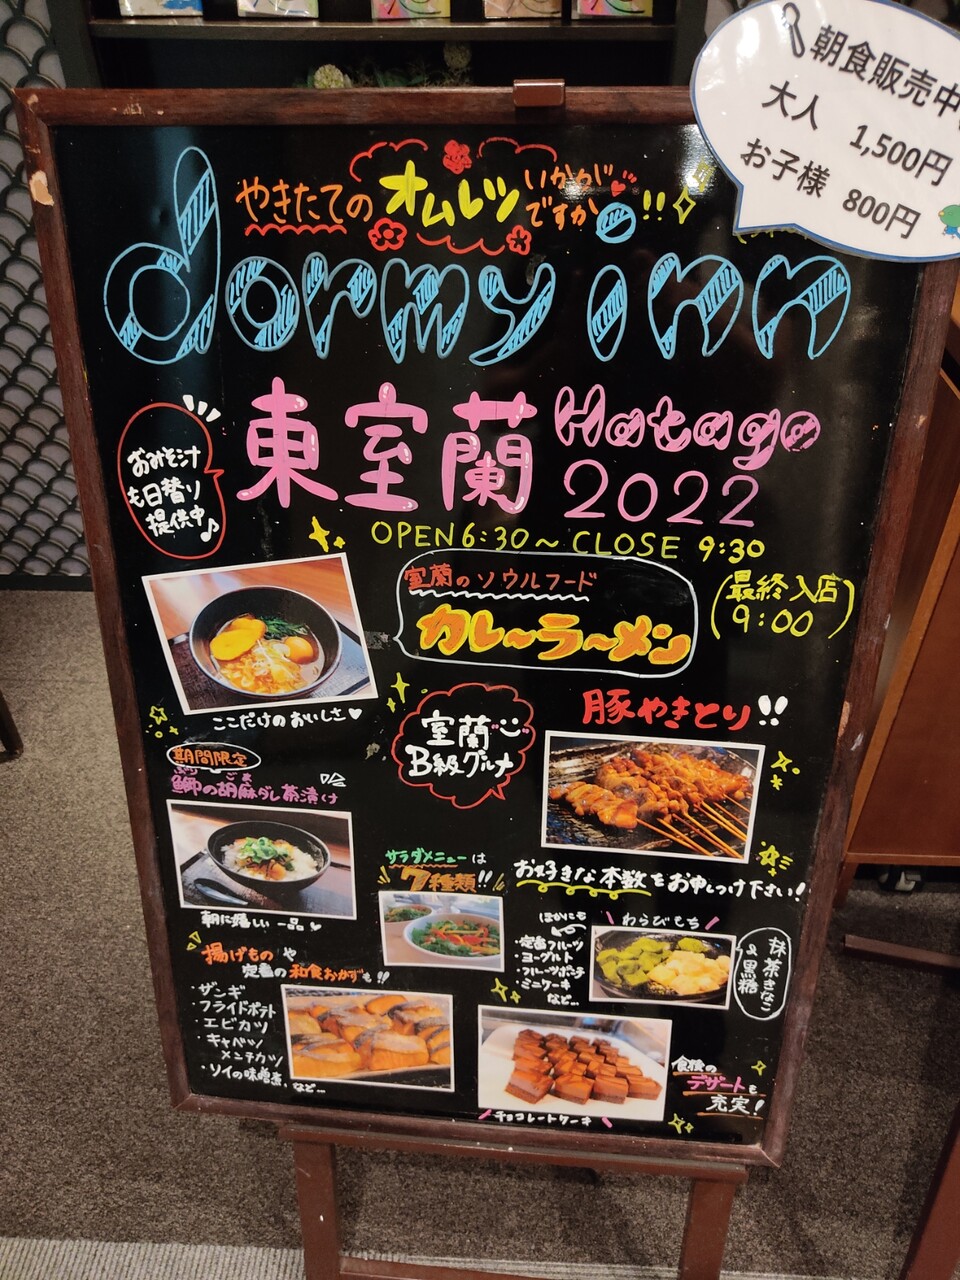 朝食販売中
大人 1,500円
お子様 800円
やきたてのオムレツいかがですか!!
dormy inn
東室蘭 Hatago
2022
おみそ汁
も日替り
提供中♪
OPEN 6:30～CLOSE 9:30
(最終入店
9:00)
室蘭のソウルフード
カレーラーメン
ここだけのおいしさ♥
室蘭
B級グルメ
豚やきとり!!
期間限定
ぶり ごま
鰤の胡麻ダレ茶漬け
お好きな本数をお申しつけ下さい!
朝に嬉しい一品♥
サラダメニューは
7種類!!
ほかにも
・定番フルーツ
・ヨーグルト
・フルーツポンチ
・ミニケーキ
など…
わらびもち
抹茶きなこ
&黒糖
揚げものや
定番の和食おかずも!!
・ザンギ
・フライドポテト
・エビカツ
・キャベツ
メンチカツ
・ソイの味噌煮、など…
チョコレートケーキ
食後の
デザートも
充実!